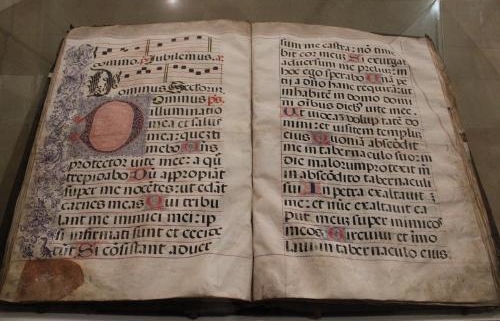 domino. Jubilemus. a.
Dominus defensor
Dominus. ps.
illuminatio
mea et salus
mea: quez ti
mebo Dns
protector uite mee: a quo
trepidabo Dū appropiāt
super me nocētes: ut edāt
carnes meas Qui tribu
lant me inimici mei: ip
si infirmati sunt et cecide
runt Si cōsistant aduer
sum me castra: nō time
bit cor meuz Si exurgat
aduersum me preliuz: in
hoc ego sperabo Unā pe
tii a dño hanc requirā: ut
inhabitē in domo domi
ni oībus diebꝰ uite mee.
Ut uideaz uoluptatē do
mini: et uisitem templuz
eius Quoniā abscōdit
me in tabernaculo suo: in
die malorum protexit me in
abscōdito tabernaculi
sui In petra exaltauit
me: et nūc exaltauit ca
put meuz super inimicos
meos Circuiui et imo
laui in tabernaculo eius